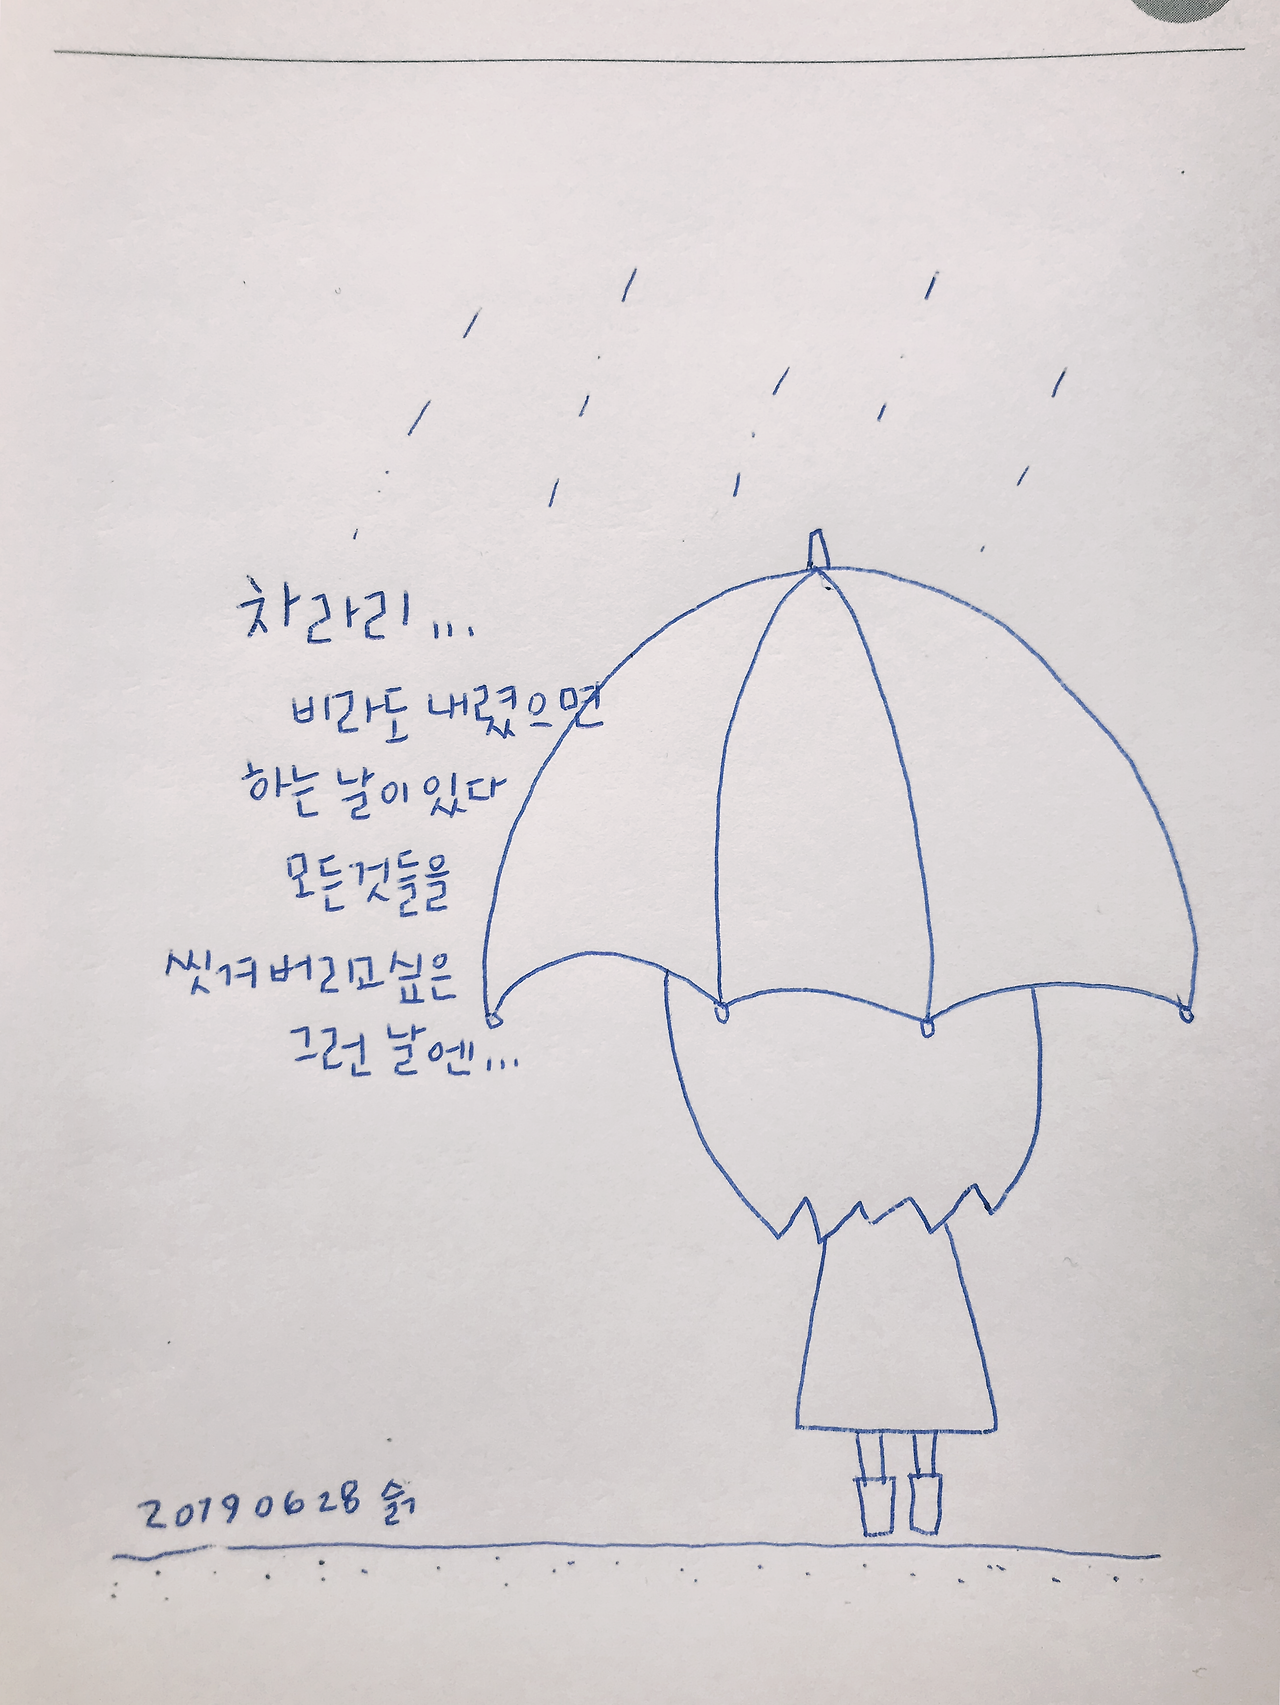 차라리...
비라도 내렸으면
하는 날이 있다
모든것들을
씻겨버리고싶은
그런 날엔...
20190628